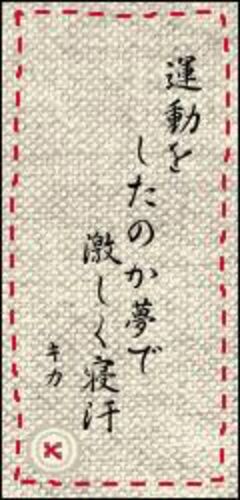 運動を
したのか夢で
激しく寝汗
キカ
K